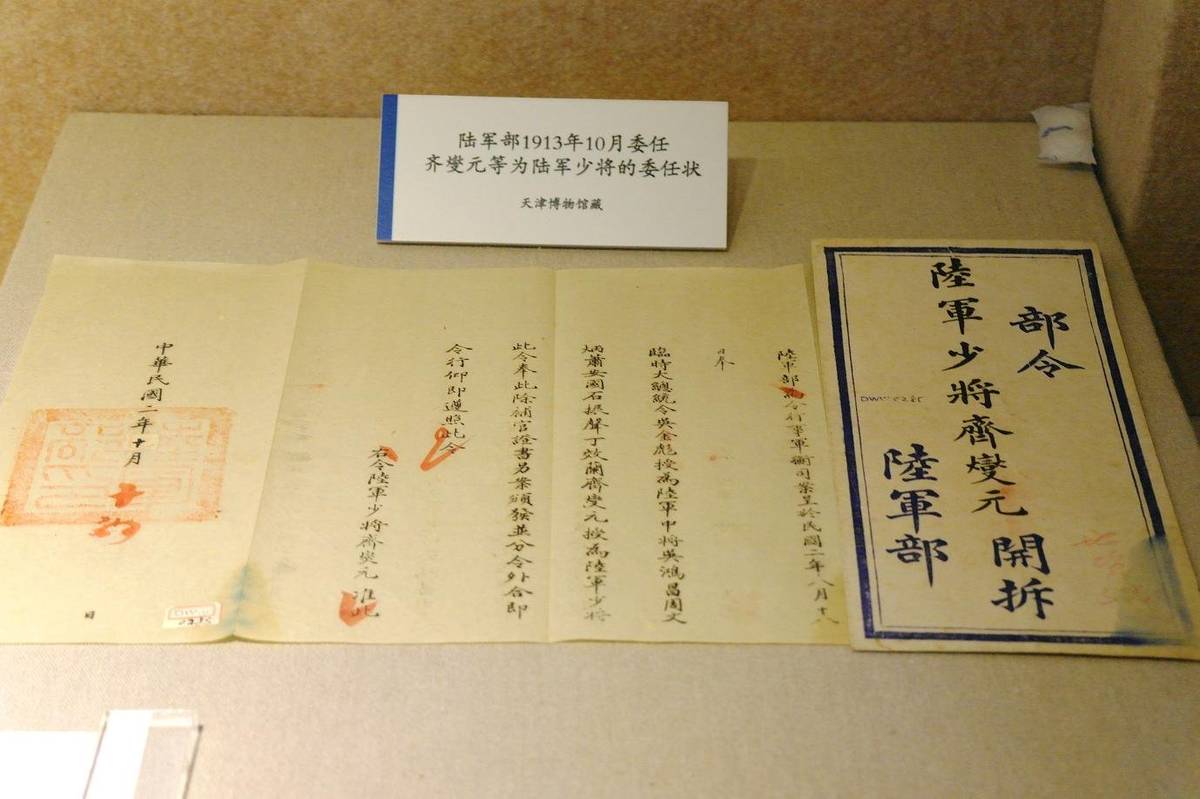 陆军部1913年10月委任
齐燮元等为陆军少将的委任状
天津博物馆藏
部令
陸軍少將齊燮元 開拆
陸軍部
陸軍部為令行事軍衡司案呈於民國二年八月十八
日奉
臨時大總統令吳金彪授為陸軍中將吳鴻昌周文
炳蕭安國石振聲丁效蘭齊燮元授為陸軍少將
此令奉此除補官證書另案頒發並分令外合即
令行仰即遵照此令
右令陸軍少將齊燮元 准此
中華民國二年十月
日